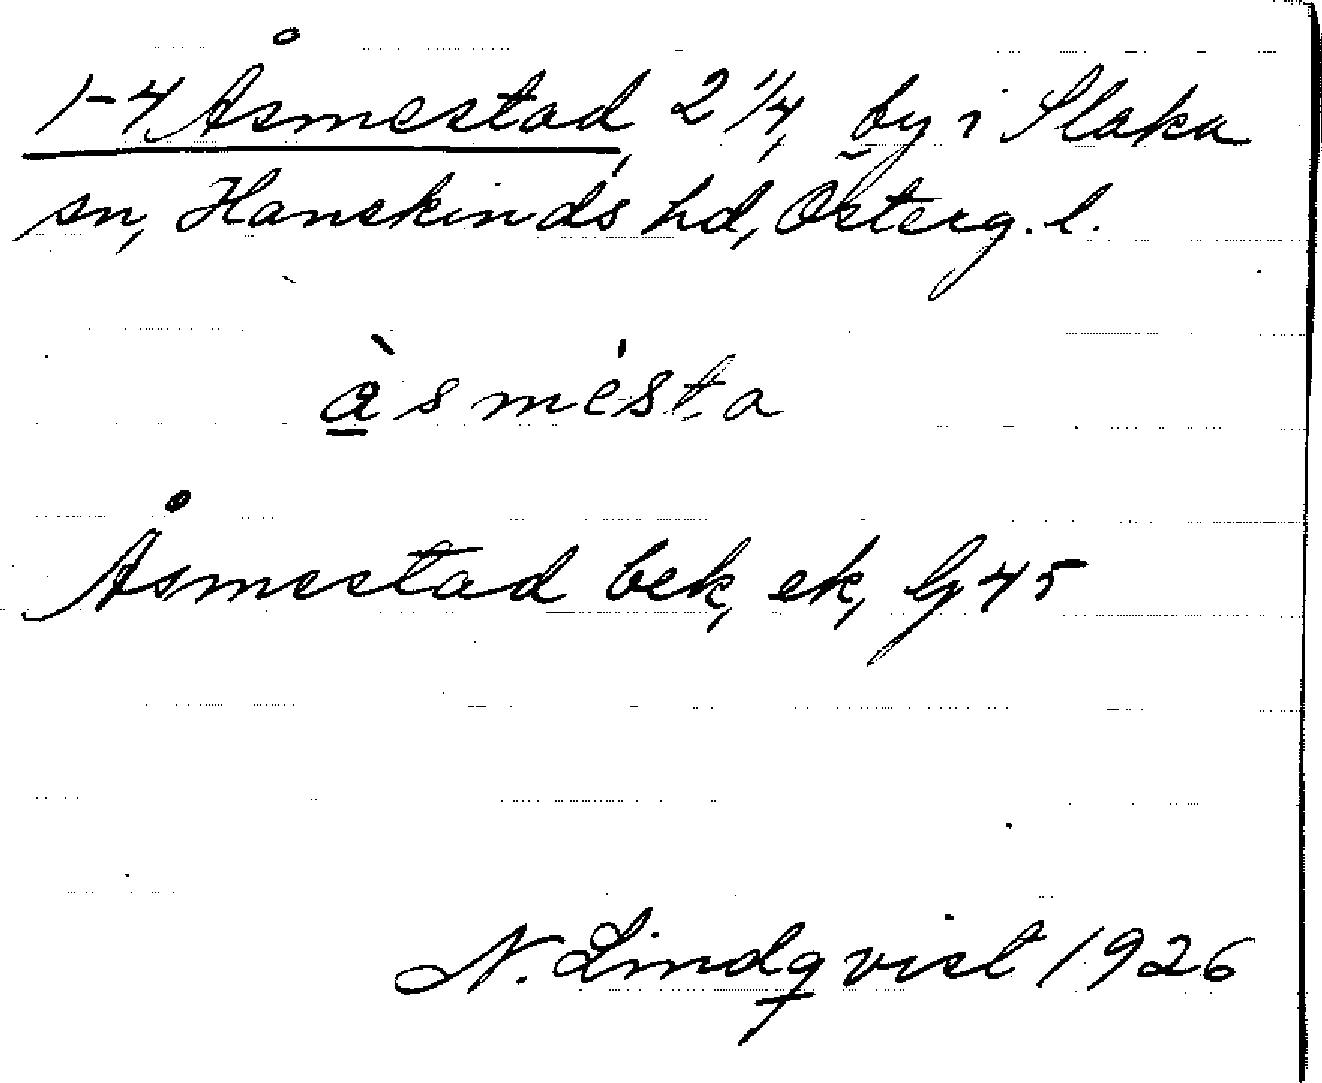 1-4 Åsmestad, 2 1/4, by i Slaka
sn, Hanekinds hd, Österg. l.
à̱smésta
Åsmestad bek, ek, Gg 45
N. Lindqvist 1926